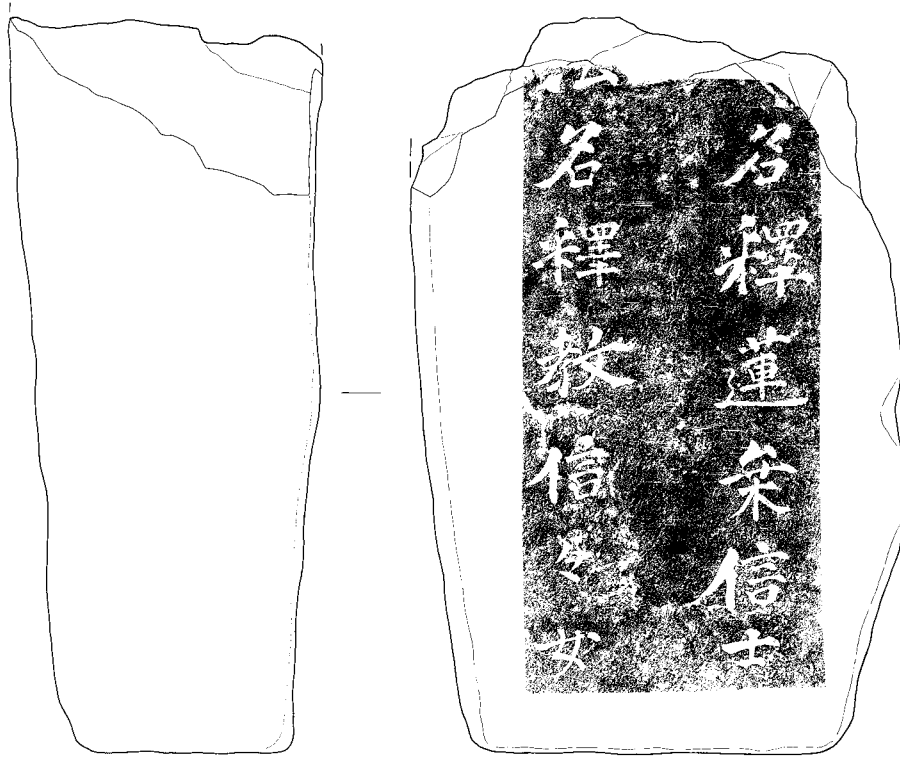 名釋蓮栄信士
法名釋教信々女